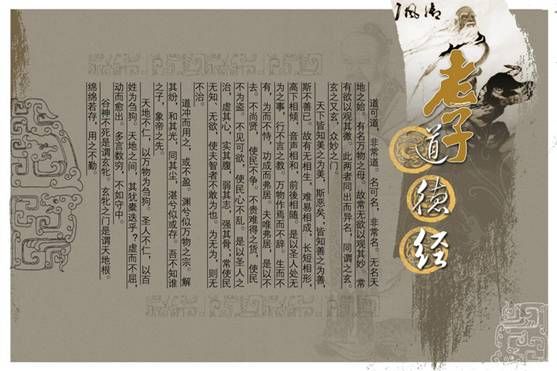 老子
道德经
道可道，非常道。名可名，非常名。无名天
地之始，有名万物之母。故常无欲以观其妙，常
有欲以观其善。此两者同出而异名，同谓之玄，
玄之又玄，众妙之门
天下皆知美之为美，斯恶矣，皆知善之为善，
斯不善已。故有无相生，难易相成，长短相形，
高下相倾，音声相和，前後相随。是以圣人处无
为之事，行不言之教，万物作焉而不辞，生而不
有，为而不恃，功成而弗居。夫唯弗居，是以不
去。不尚贤，使民不争。不贵难得之货，使民
不为盗。不见可欲，使民心不乱。是以圣人之
治，虚其心，实其腹，弱其志，强其骨，常使民
无知、无欲，使夫智者不敢为也。为无为，则无
不治。
道冲而用之，或不盈。渊兮似万物之宗。解
其纷，和其光，同其尘，湛兮似或存。吾不知谁
之子，象帝之先。
天地不仁，以万物为刍狗。圣人不仁，以百
姓为刍狗。天地之间，其犹橐迭乎？虚而不屈，
动而愈出。多言数穷，不如守中。
谷神不死是谓玄牝。玄牝之门是谓天地根。
绵绵若存，用之不勤。